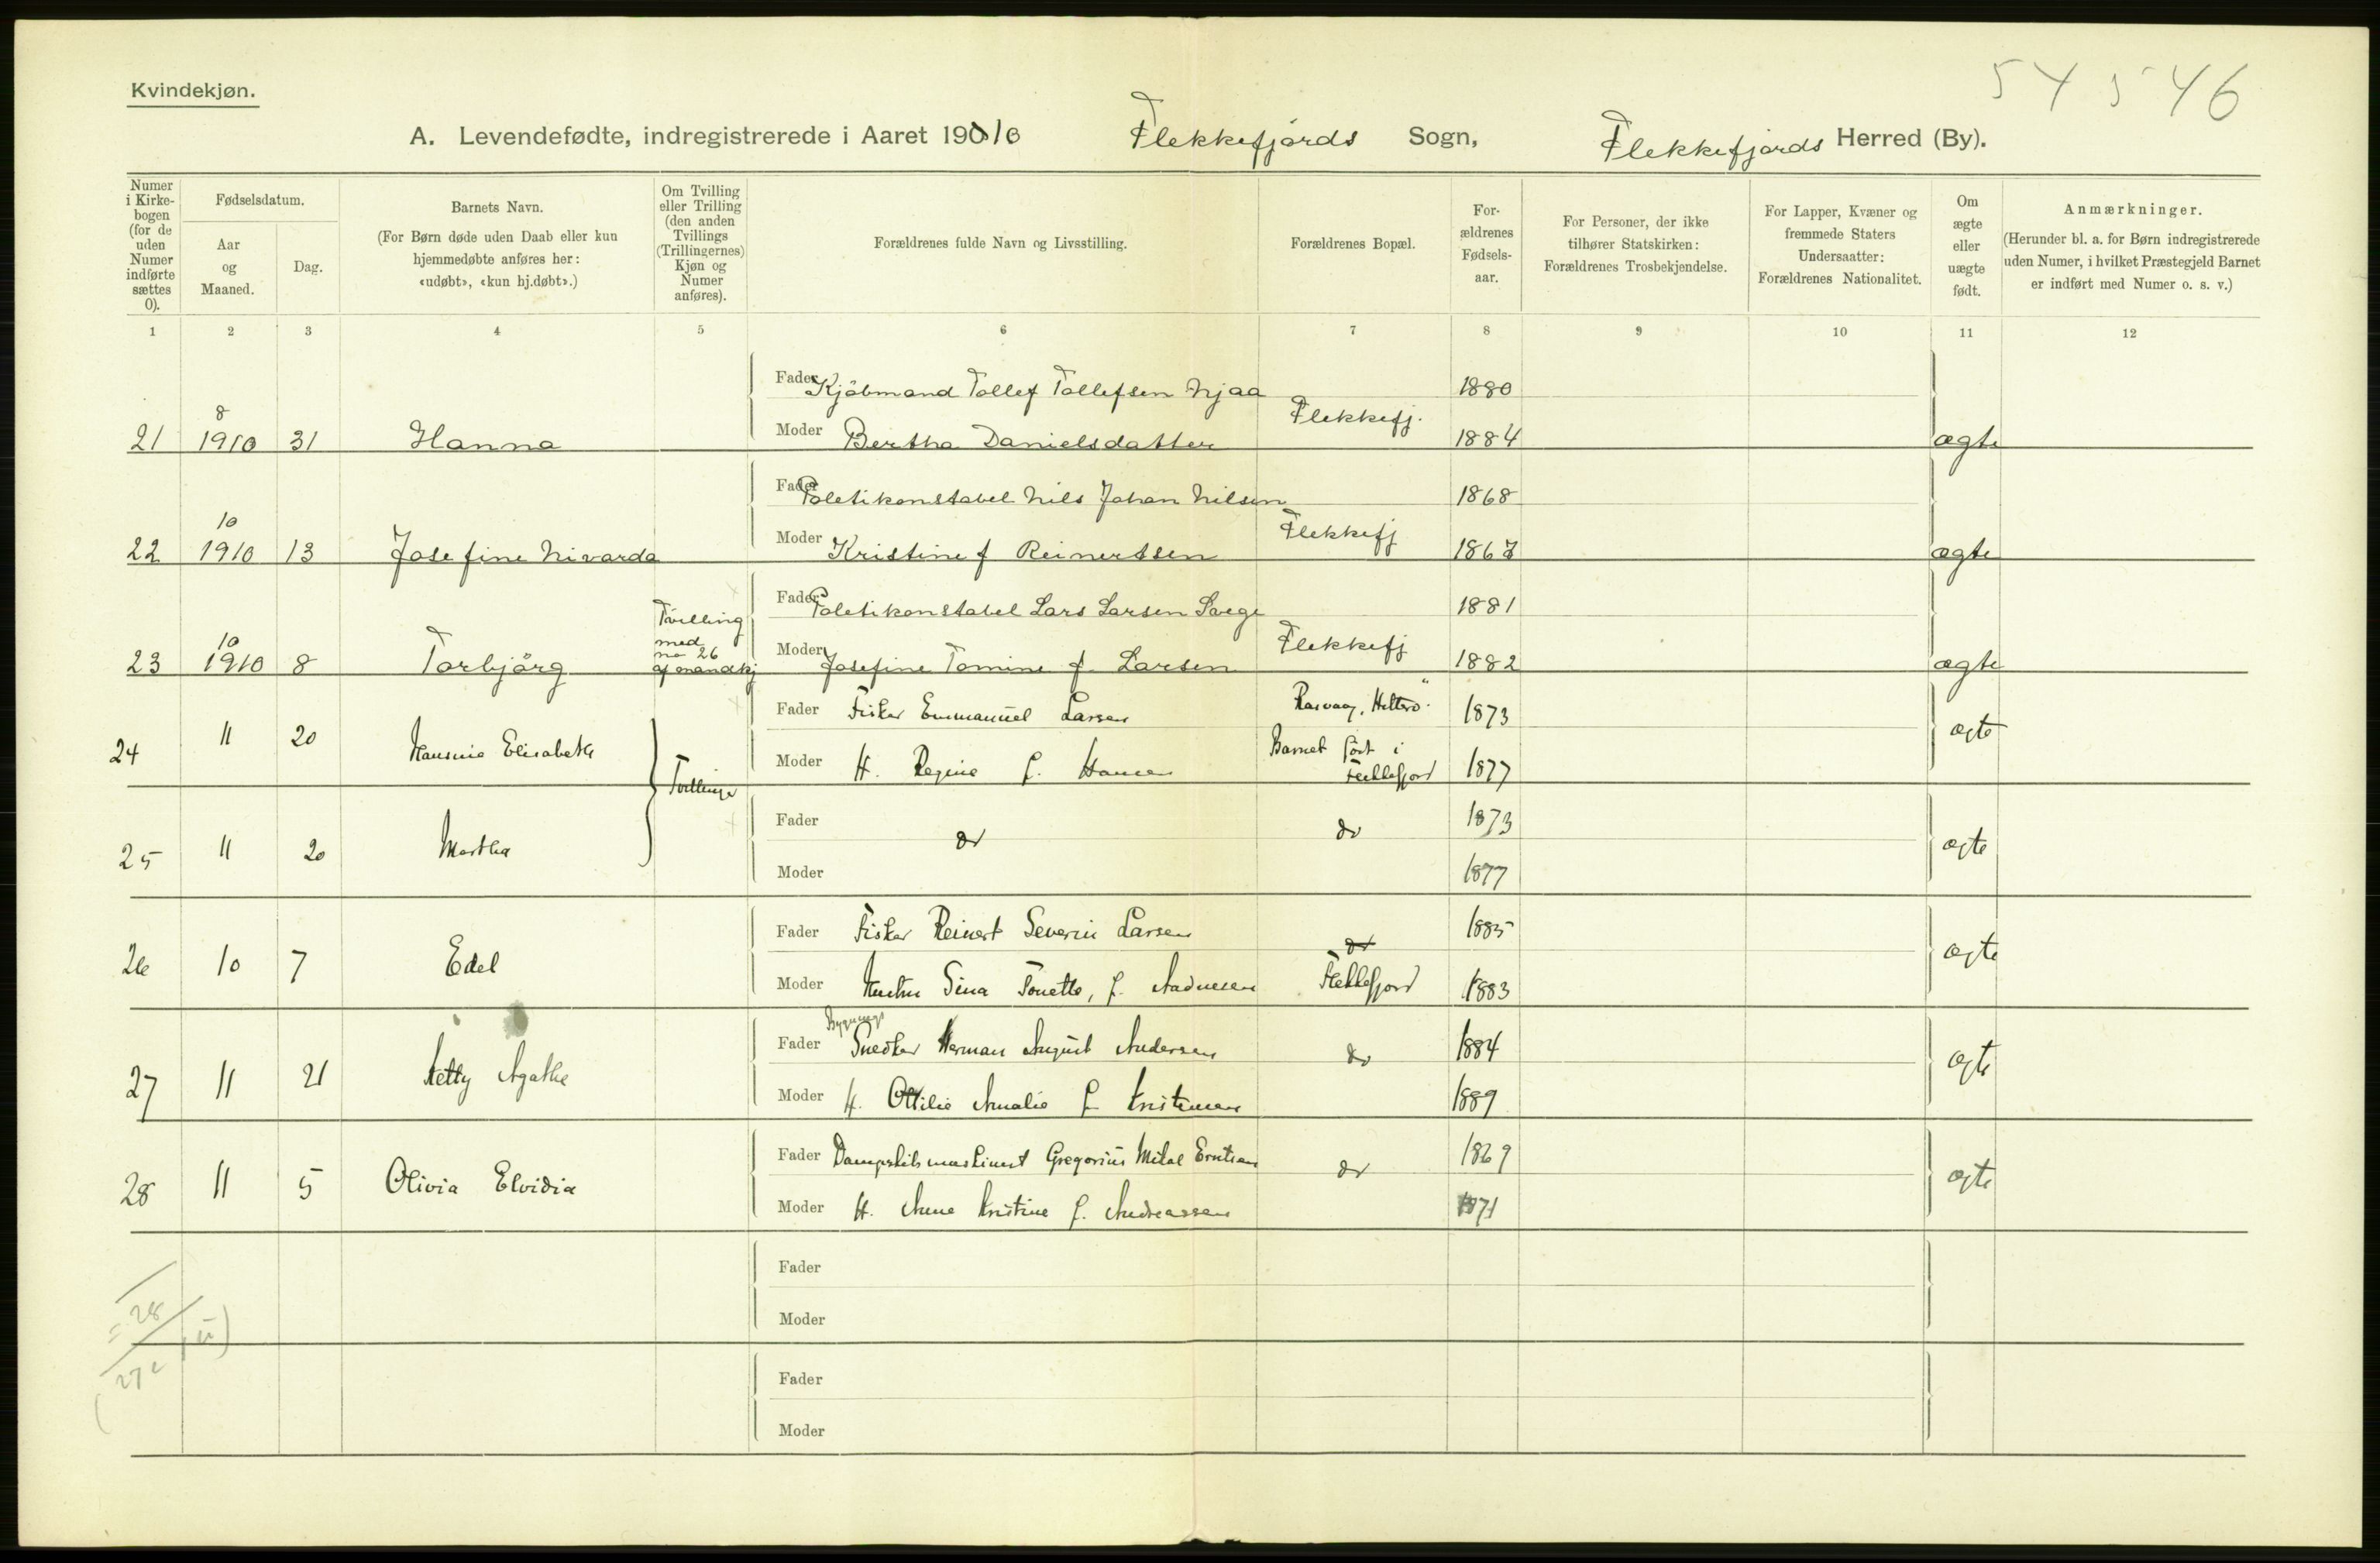 Kvindekjøn.
54 546
A. Levendefødte, indregistrerede i Aaret 1910 Flekkefjords Sogn, Flekkefjords Herred (By).
Numer i Kirkebogen (for de uden Numer indførte sættes 0).
Fødselsdatum.
Aar og Maaned.
Dag.
Barnets Navn.
(For Børn døde uden Daab eller kun hjemmedøbte anføres her: «udøbt», «kun hj.døbt».)
Om Tvilling eller Trilling (den anden Tvillings (Trillingernes) Kjøn og Numer anføres).
Forældrenes fulde Navn og Livsstilling.
Forældrenes Bopæl.
For-ældrenes Fødsels-aar.
For Personer, der ikke tilhører Statskirken: Forældrenes Trosbekjendelse.
For Lapper, Kvæner og fremmede Staters Undersaatter: Forældrenes Nationalitet.
Om ægte eller uægte født.
Anmærkninger.
(Herunder bl. a. for Børn indregistrerede uden Numer, i hvilket Præstegjeld Barnet er indført med Numer o. s. v.)
1 2 3 4 5 6 7 8 9 10 11 12
Fader Kjöbmand Tollef Tollefsen Njaa 1880
8
21 1910 31 Hanna Moder Bertha Danielsdatter Flekkefj. 1884 ægte
Fader Poletikonstabel Nils Johan Nilsen 1868
10
22 1910 13 Josefine Nivarda Moder Kristine f Reinertsen Flekkefj 1867 ægte
Fader Poletikonstabel Lars Larsen 1881
Tvilling
med
no 26
af mandkj
10
23 1910 8 Torbjörg Moder Josefine Tomine f. Larsen Flekkefj 1882 ægte
Fader Fisker Emmanuel Larsen Rasvaag, Hitterö. 1873
24 11 20 Elisabeth ægte
Moder H. Regine f. Hansen Barnet født i
Flekkefjord 1877
Tvillinger
Fader do do 1873
25 11 20 Martha ægte
Moder 1877
Fader Fisker Reinert Severin Larsen do 1885
26 10 7 Edel ægte
Moder Hustru Sina Tonette, f. Aadnesen Flekkefjord 1883
Bygnings
Fader Snedker Herman August Andersen do 1884
27 11 21 Agathe ægte
Moder H. Ottilie Amalie f. Kristensen 1889
Fader Dampskibsmaskinist Gregorius do 1869
28 11 5 Olivia Elvidia ægte
Moder H. Anne Kristine f. Andreassen 1871
Fader
= 28
Moder
Fader
Moder